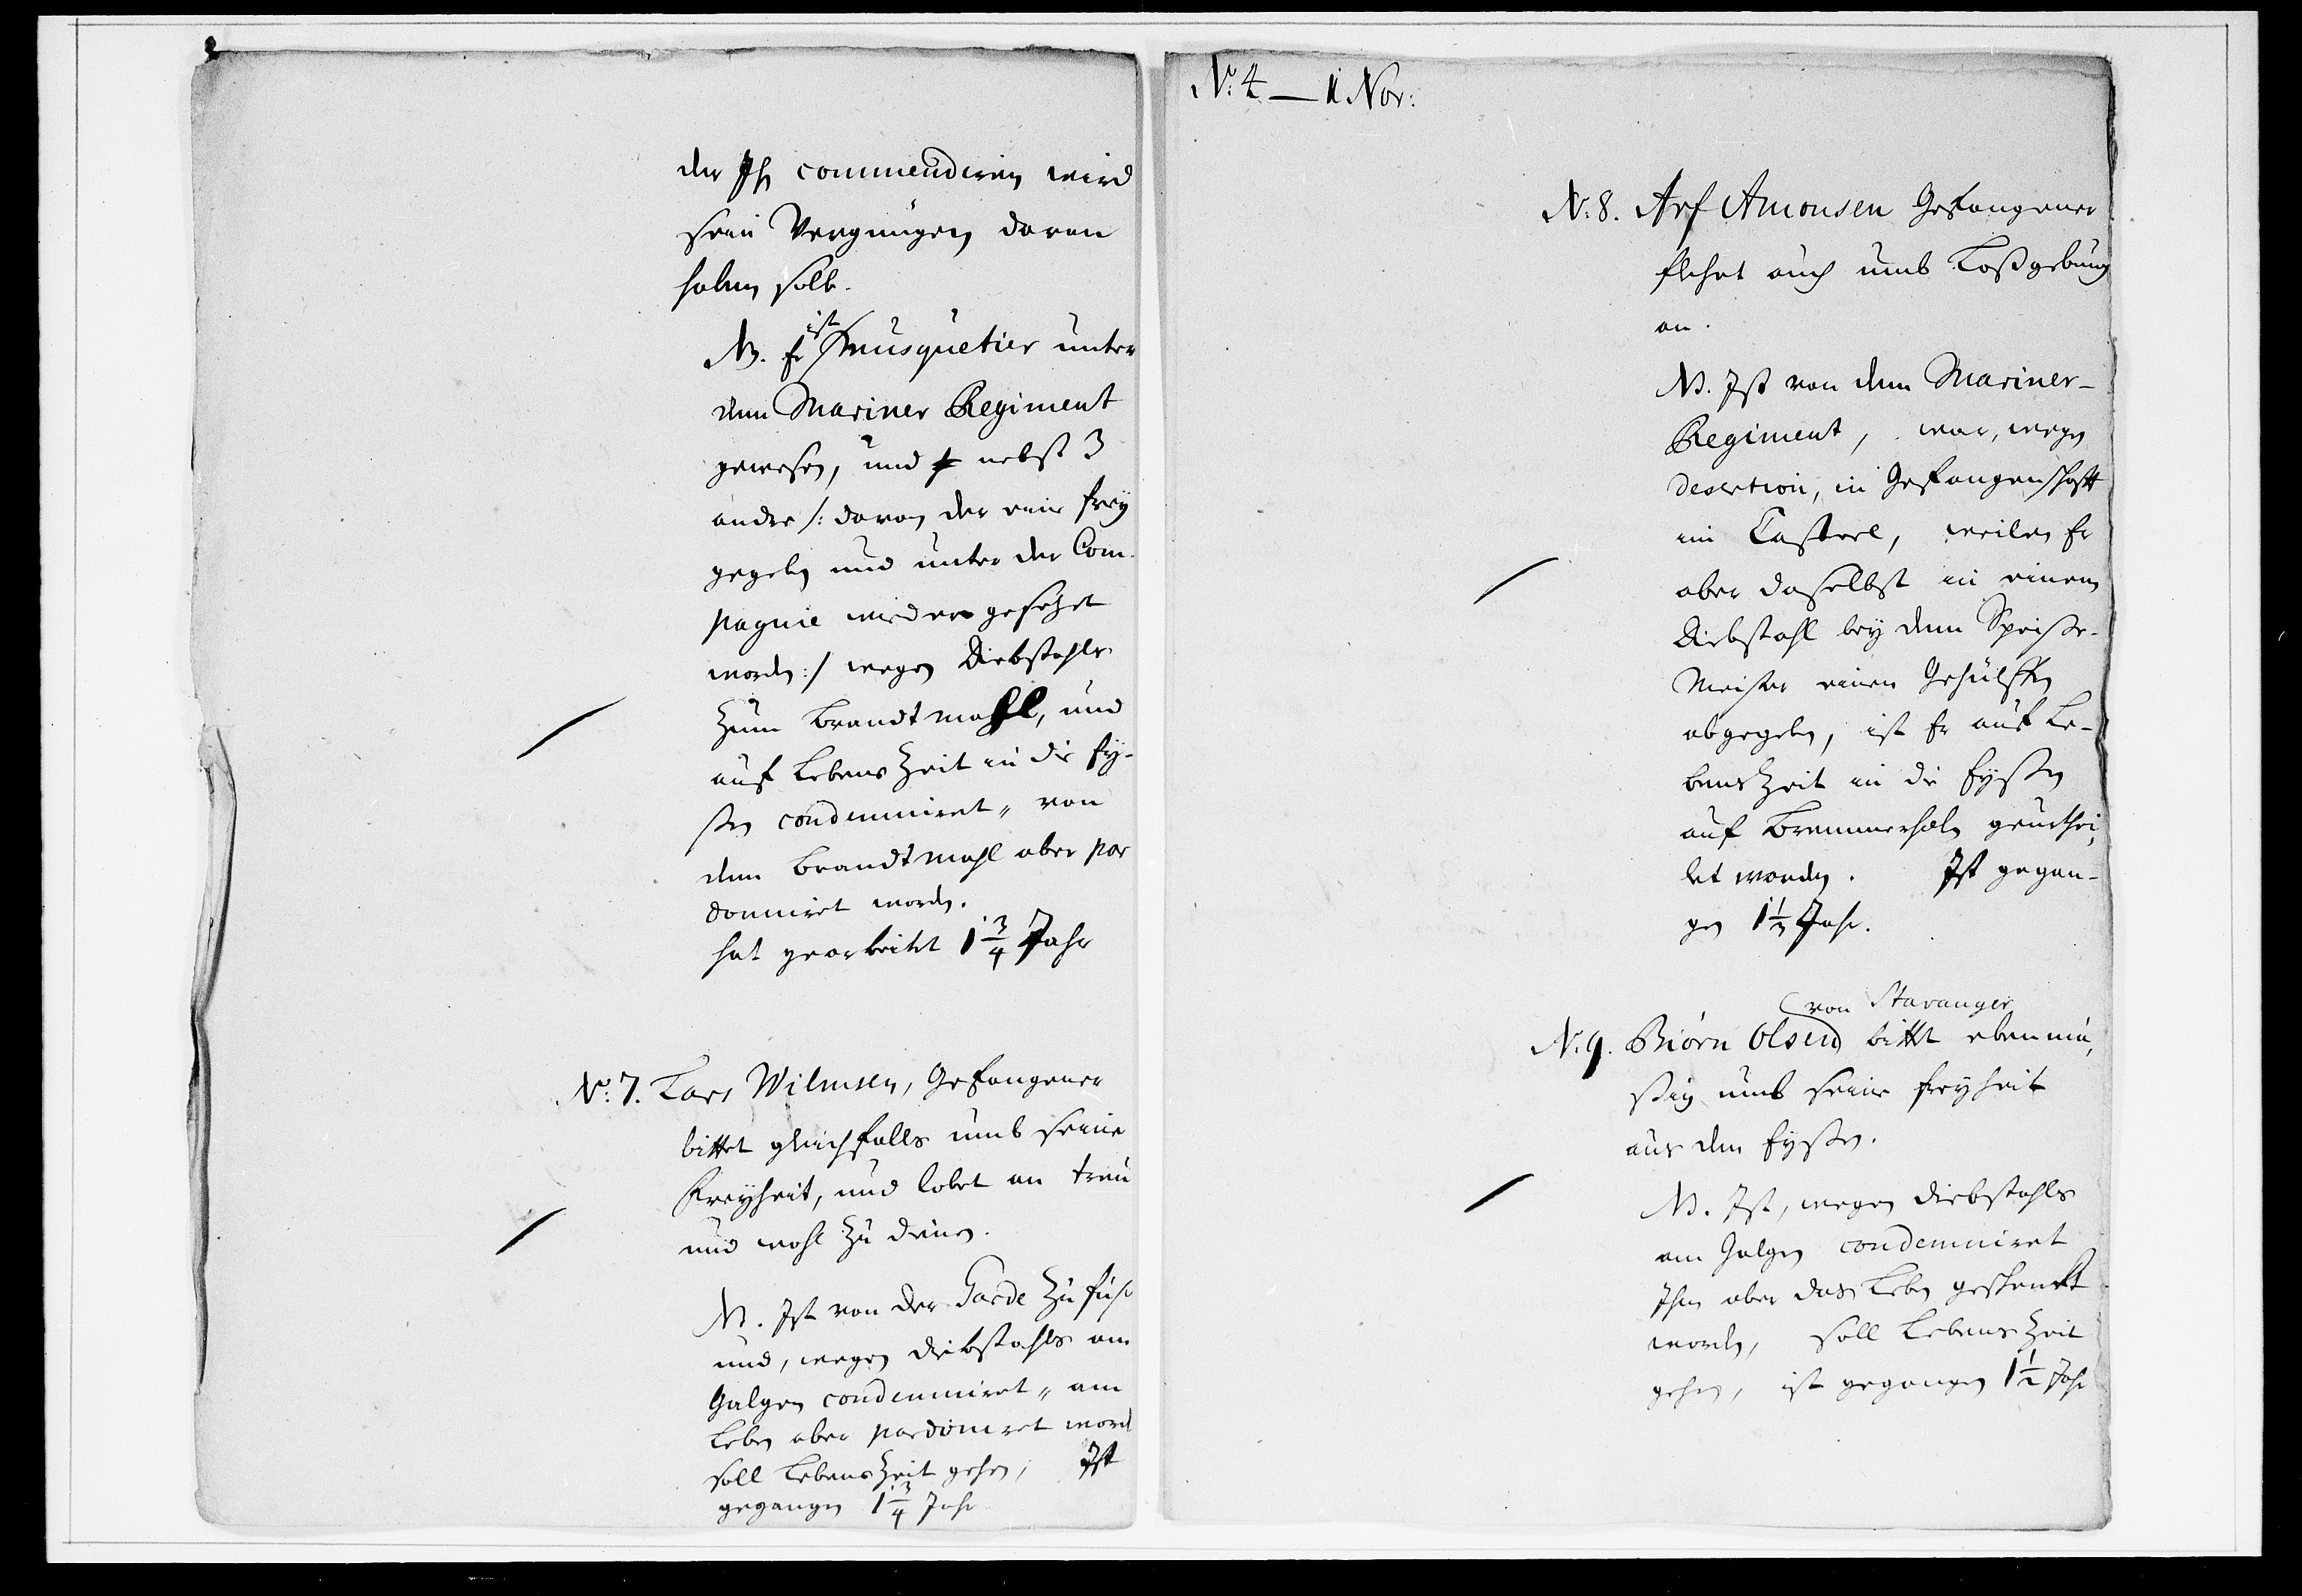 der Ihn commendiren wird
sein Vergnügen daran
haben solle.
NB. Er ist Musquetier unter
dem Mariner Regiment
gewesen, und nebst 3
andre /: davon der eine frey
gegeben und unter der Com-
pagnie wieder gesetzet
worden :/ wegen Diebstahls
zum Brandtmahl, und
auf Lebens Zeit in die Ey-
ßen condemniret, von
dem Brandtmahl aber par
donniret worden.
hat gearbeitet 1 3/4 Jahr
No: 7. Lars Wilmsen, Gefangener
bittet gleichfalls umb seine
Freyheit, und lobet an treu
und wohl zu dienen.
NB. Ist von der Garde zu Fuß
und, wegen Diebstahls am
Galgen condemniret, am
Leben aber pardoniret word
soll Lebens Zeit gehen, Ist
gegangen 1 3/4 Jahr
No: 4 — 11 Nov:
No: 8. Arf Amonsen Gefangener
flehet auch umb Loßgebung
an.
NB. Ist von dem Mariner-
Regiment, war, wegen
desertion, in Gefangenschafft
im Casteel, weilen Er
aber daselbst in einem
Diebstahl bey dem Speise-
Meister einen Gehülffen
abgegeben, ist Er auf Le-
bens Zeit in die Eyßen
auf Bremmerholm geurthei-
let worden. Ist gegan-
gen 1 1/2 Jahr.
von Stavanger
No. 9. Biørn Olsen bittet ebenmä-
ßig umb seine Freyheit
aus den Eyßen.
NB. Ist, wegen Diebstahls
am Galgen condemniret
Ihm aber das Leben geschenckt
worden, soll Lebens Zeit
gehen, ist gegangen 1 1/2 Jahr